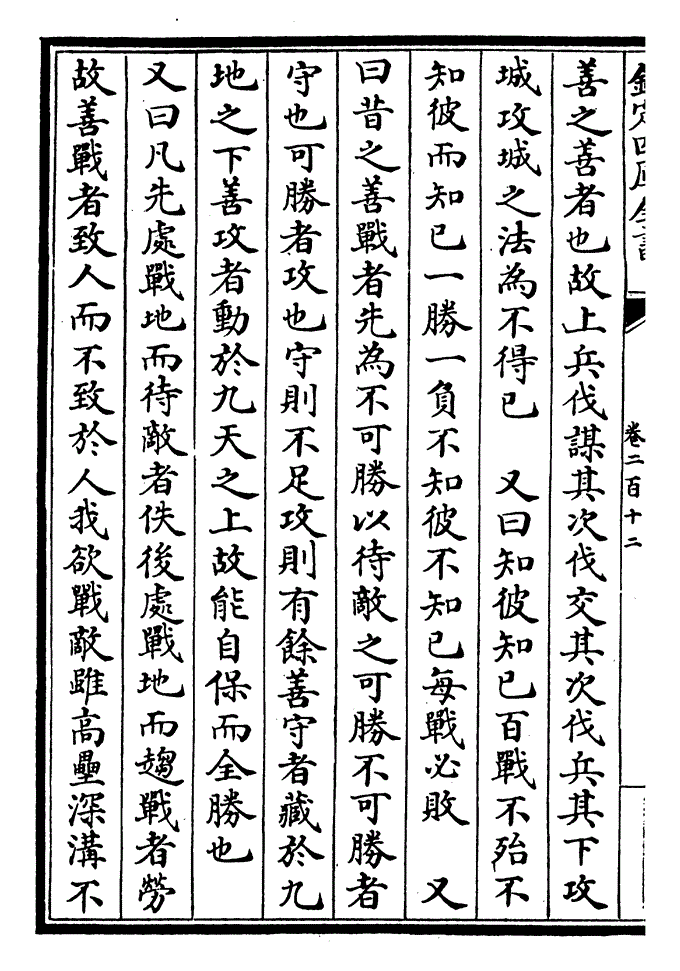 欽定四庫全書
卷二百十二
善之善者也故上兵伐謀其次伐交其次伐兵其下攻
城攻城之法為不得已　又曰知彼知已百戰不殆不
知彼而知已一勝一負不知彼不知已每戰必敗　又
曰昔之善戰者先為不可勝以待敵之可勝不可勝者
守也可勝者攻也守則不足攻則有餘善守者藏於九
地之下善攻者動於九天之上故能自保而全勝也
又曰凡先處戰地而待敵者佚後處戰地而趨戰者勞
故善戰者致人而不致於人我欲戰敵雖高壘深溝不